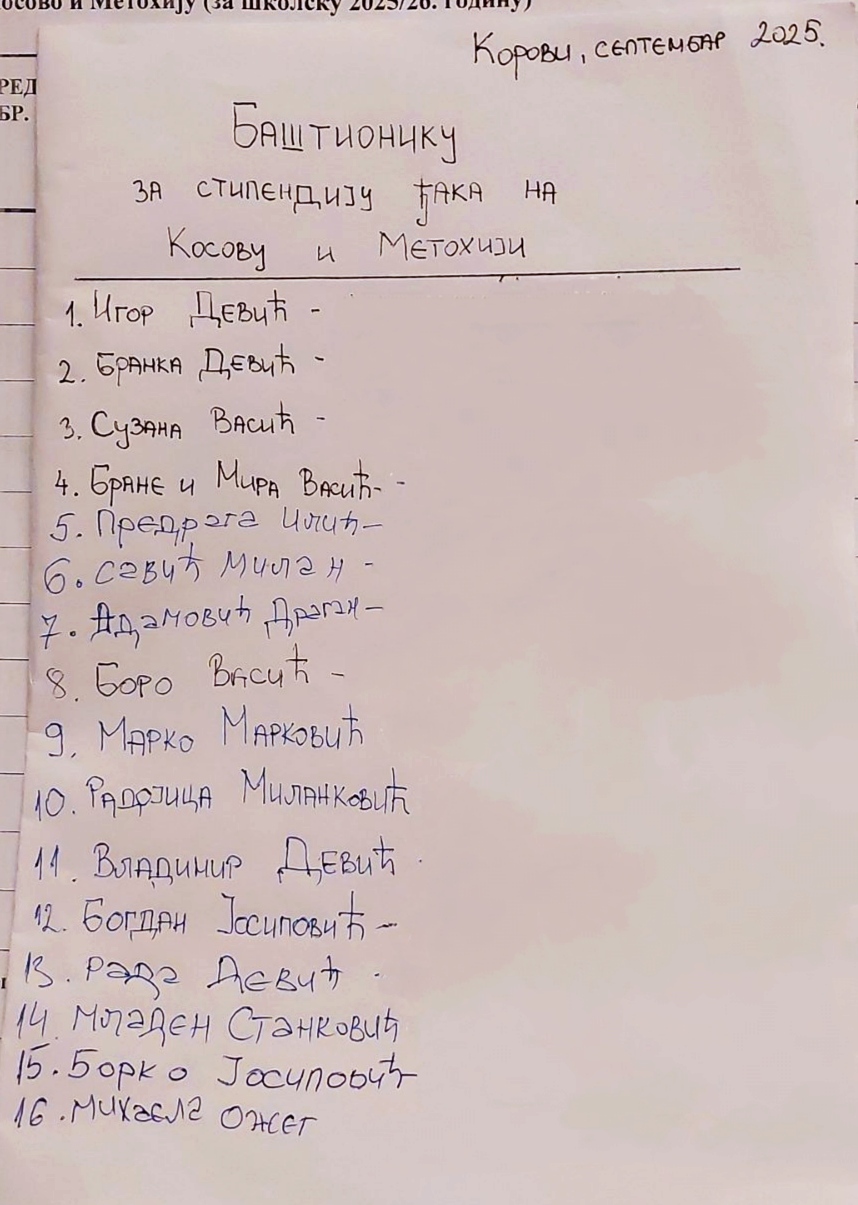 осово и Метохију (за школску 2025/26. годину)
Корови, септембар 2025.
РЕД
БР.
Баштионику
за стипендију ђака на
Косову и Метохији
1. Игор Девић -
2. Бранка Девић -
3. Сузана Васић -
4. Бране и Мира Васић- -
5. Предрага Илић-
6. Савић Милан -
7. Адамовић Драган-
8. Боро Васић -
9. Марко Марковић
10. Радојица Миланковић
11. Владимир Девић
12. Богдан Јосиповић -
13. Рада Девић -
14. Младен Станковић
15. Борко Јосиповић
16. Михаела Ожег